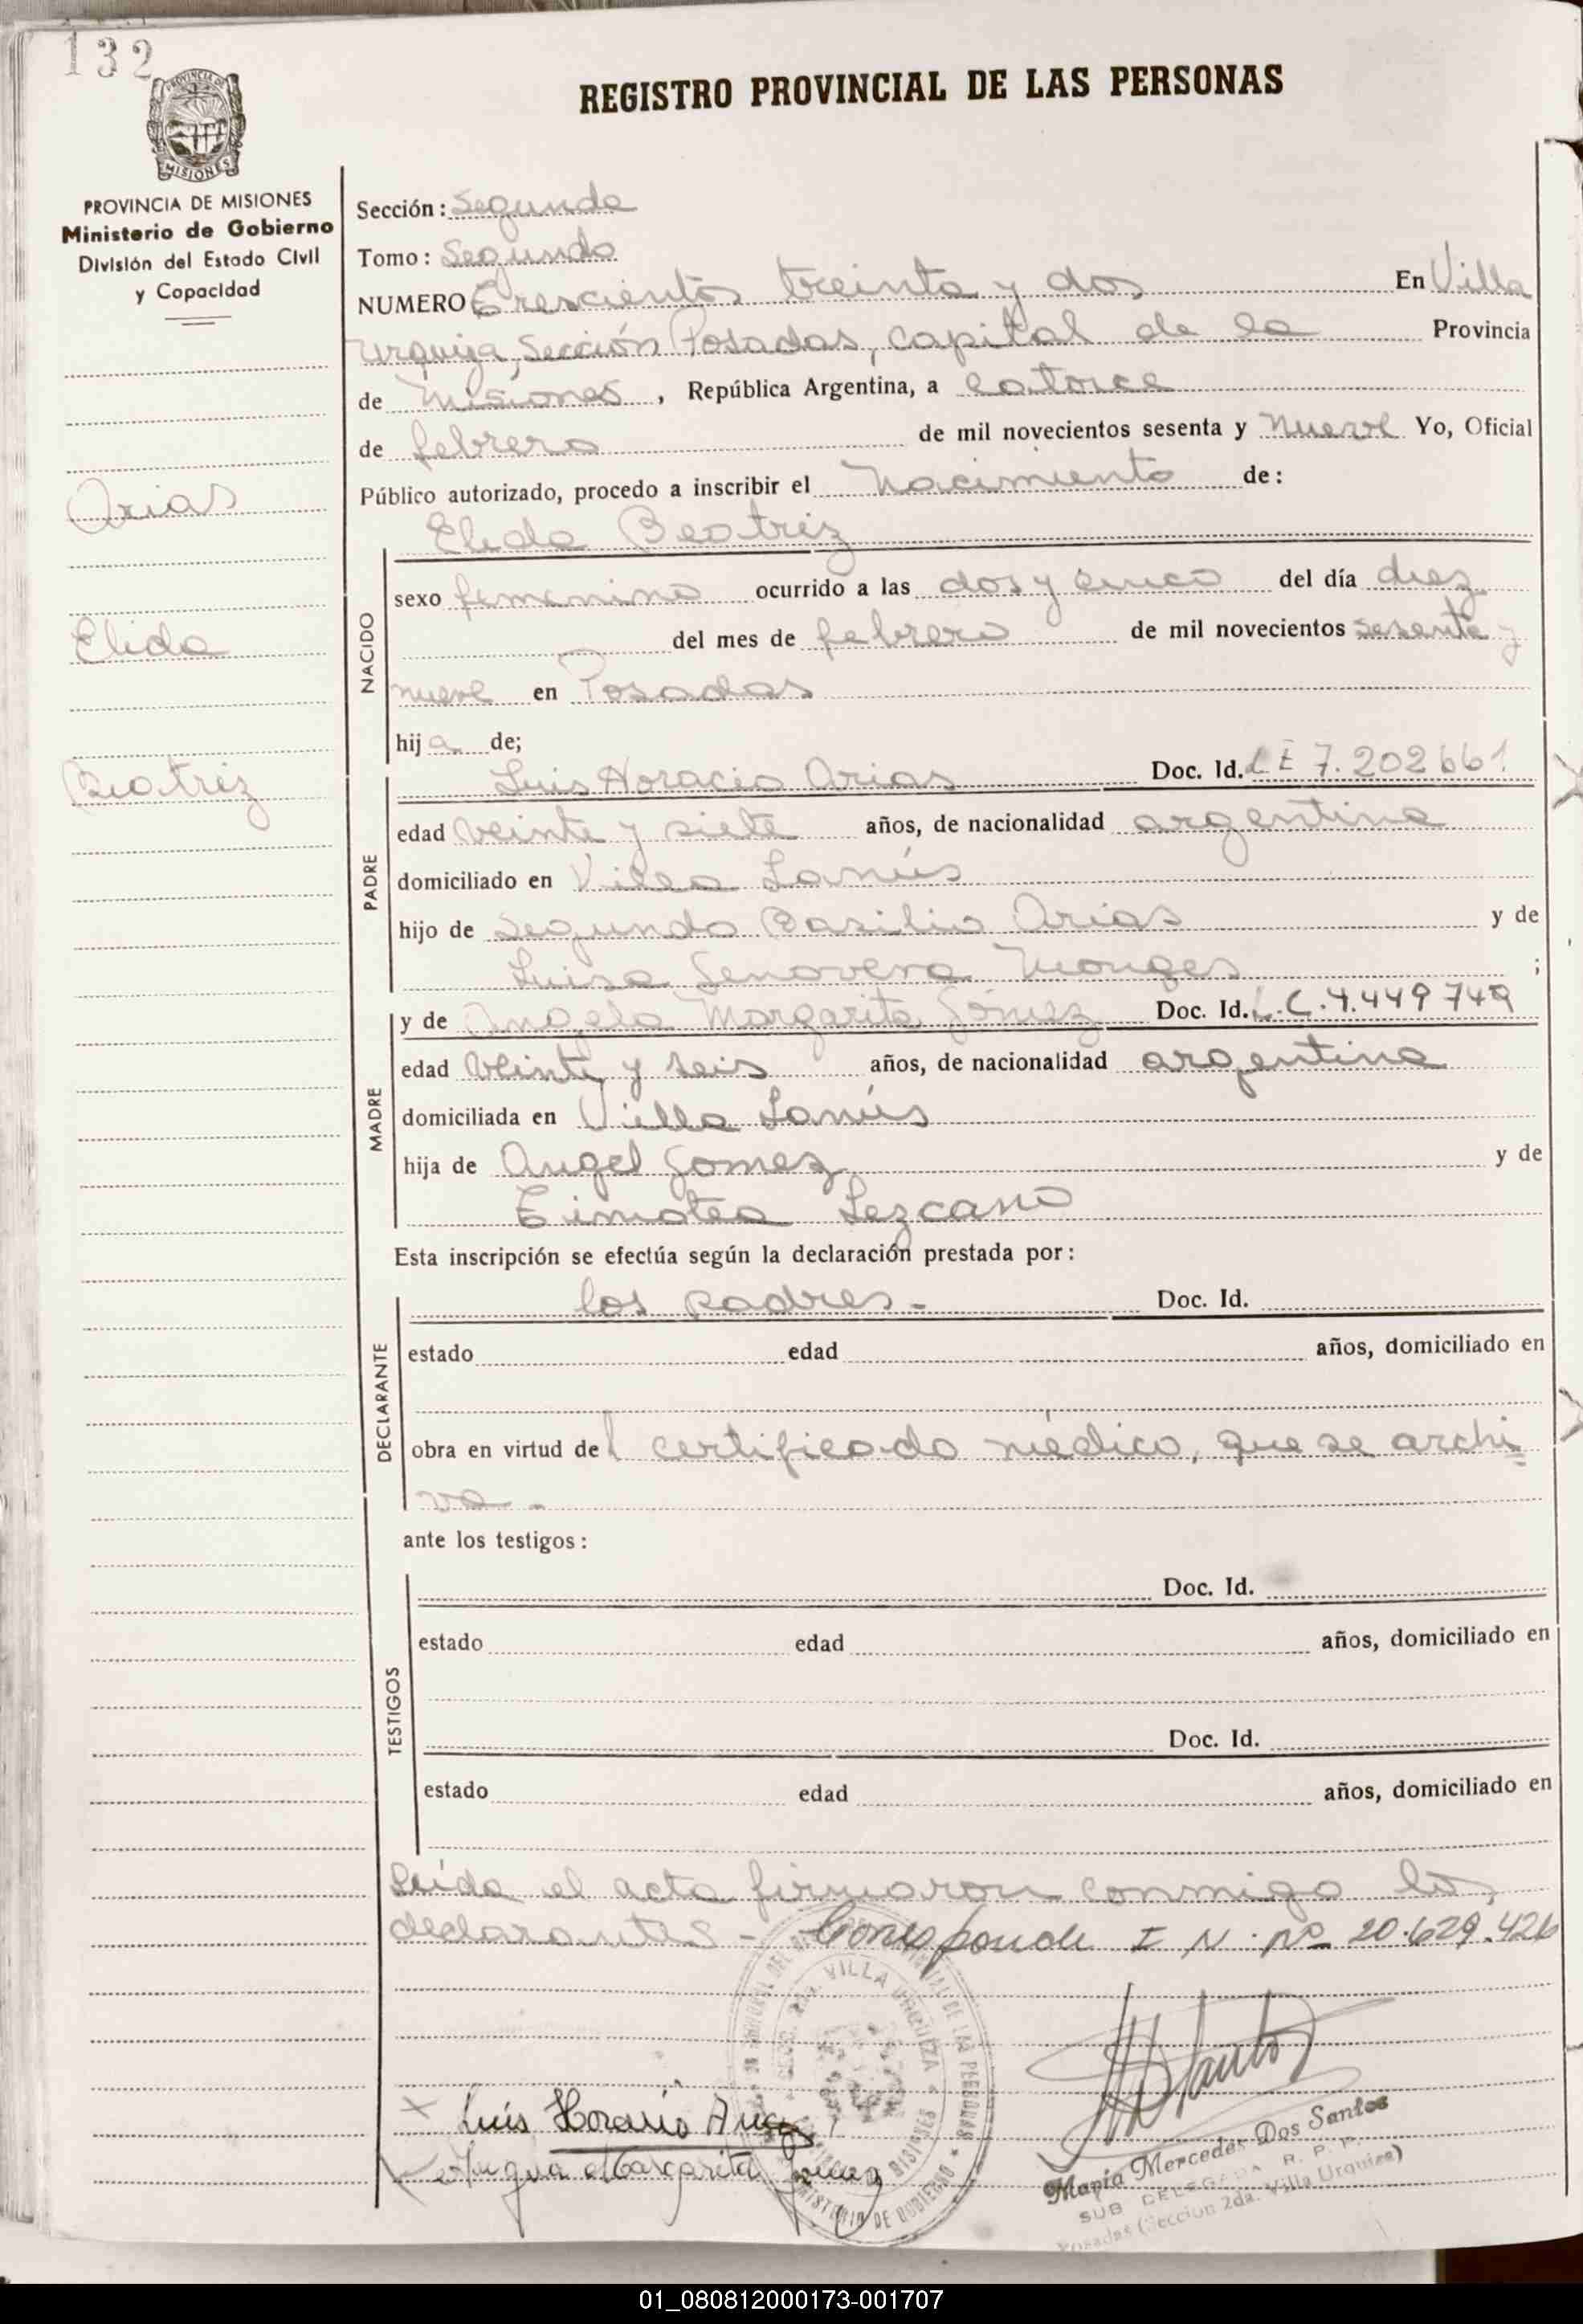 132
PROVINCIA DE
MISIONES
REGISTRO PROVINCIAL DE LAS PERSONAS
PROVINCIA DE MISIONES
Ministerio de Gobierno
División del Estado Civil
y Capacidad
Arias
Elida
Beatriz
Sección: Segunda
Tomo: Segundo
NUMERO Trescientos treinta y dos En Villa
Urquiza, Sección Posadas, capital de la Provincia
de Misiones, República Argentina, a catorce
de febrero de mil novecientos sesenta y nueve Yo, Oficial
Público autorizado, procedo a inscribir el nacimiento de:
Elida Beatriz
NACIDO
sexo femenino ocurrido a las dos y cinco del día diez
del mes de febrero de mil novecientos sesenta y
nueve en Posadas
hija de;
PADRE
Luis Horacio Arias Doc. Id. L E 7.202661
edad veinte y siete años, de nacionalidad argentina
domiciliado en Villa Lanús
hijo de Segundo Basilio Arias y de
Luisa Genoveva Monges ;
MADRE
y de Angela Margarita Gómez Doc. Id. L.C. 4.449749
edad veinte y seis años, de nacionalidad argentina
domiciliada en Villa Lanús
hija de Angel Gomez y de
Timotea Lezcano
Esta inscripción se efectúa según la declaración prestada por:
DECLARANTE
los padres.- Doc. Id.
estado edad años, domiciliado en
obra en virtud del certificado médico, que se archi
va.-
ante los testigos:
TESTIGOS
Doc. Id.
estado edad años, domiciliado en
Doc. Id.
estado edad años, domiciliado en
Leída el acta firmaron conmigo los
declarantes - Corresponde I N. Nº 20.629.426
VILLA URQUIZA
MISIONES
MINISTERIO DE GOBIERNO
DE LAS PERSONAS
Luis Horacio Arias
Margarita Gomez
María Mercedes Dos Santos
SUB DELEGADA R. P. P.
Posadas (Seccion 2da. Villa Urquiza)
01_080812000173-001707